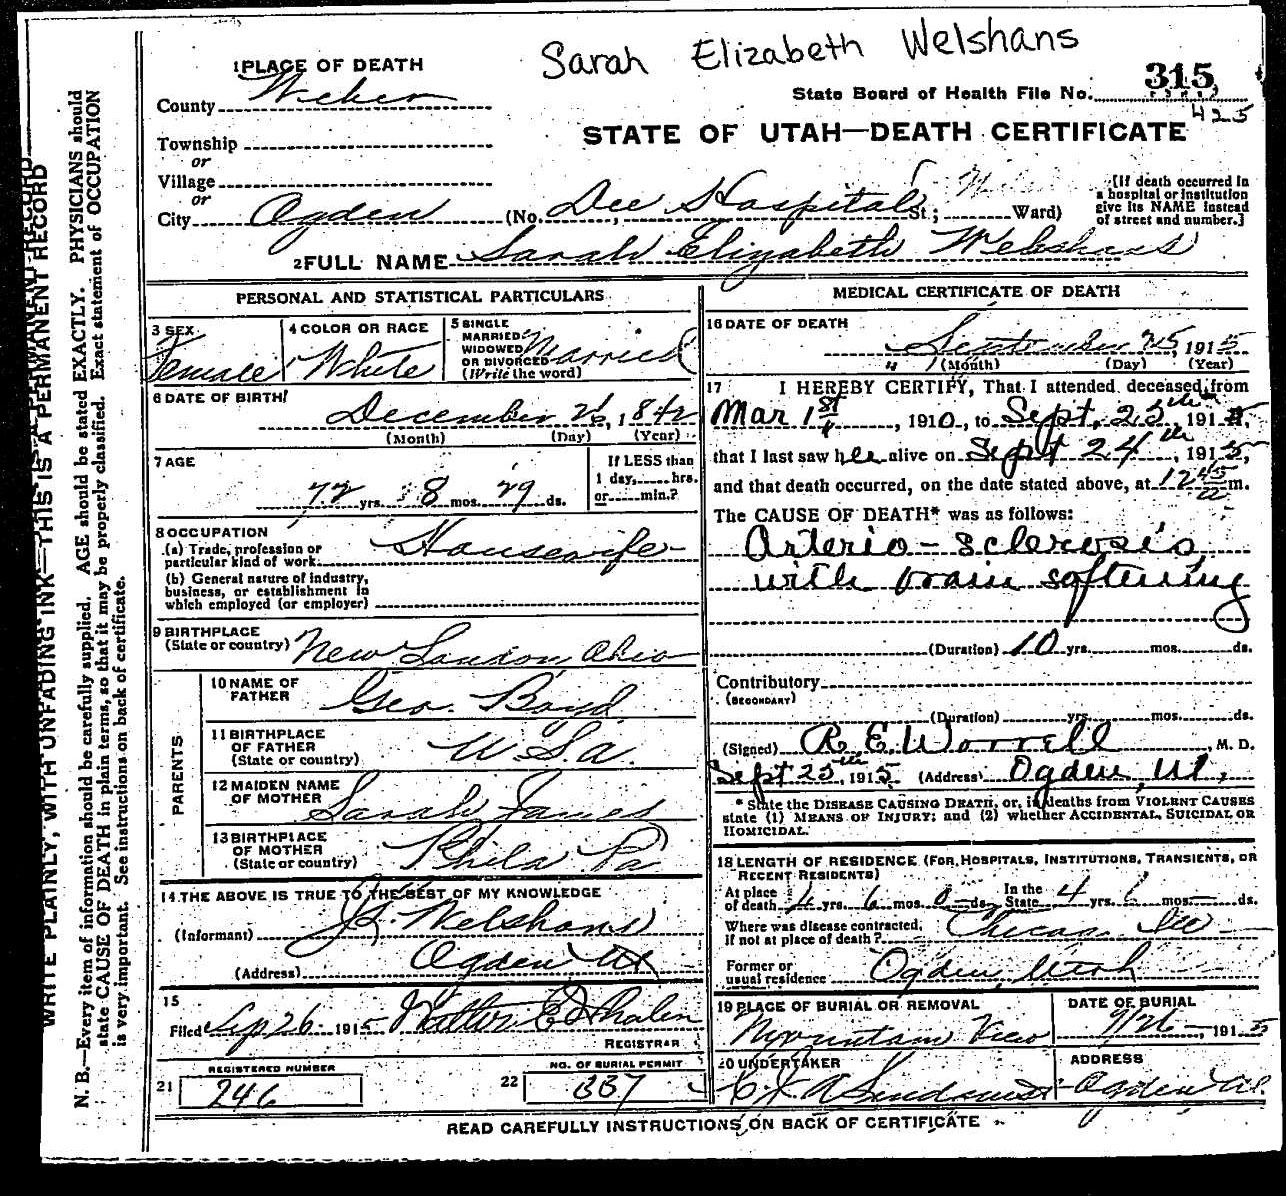 Sarah Elizabeth Welshans
1 PLACE OF DEATH
315
County Weber
State Board of Health File No.
425
Township
STATE OF UTAH—DEATH CERTIFICATE
or
Village
or
City Ogden (No. Dee Hospital St.; Ward)
[If death occurred in
a hospital or institution
give its NAME instead
of street and number.]
2 FULL NAME Sarah Elizabeth Welshans
PERSONAL AND STATISTICAL PARTICULARS
3 SEX
Female
4 COLOR OR RACE
White
5 SINGLE
MARRIED
WIDOWED
OR DIVORCED
(Write the word)
Married
6 DATE OF BIRTH
December 26, 1842
(Month) (Day) (Year)
7 AGE
72 yrs. 8 mos. 29 ds.
If LESS than
1 day,......hrs.
or......min.?
8 OCCUPATION
(a) Trade, profession or
particular kind of work: Housewife
(b) General nature of industry,
business, or establishment in
which employed (or employer)
9 BIRTHPLACE
(State or country) New London Ohio
PARENTS
10 NAME OF
FATHER Geo. Boyd
11 BIRTHPLACE
OF FATHER
(State or country) U.S.a.
12 MAIDEN NAME
OF MOTHER Sarah James
13 BIRTHPLACE
OF MOTHER
(State or country) Phila Pa
14 THE ABOVE IS TRUE TO THE BEST OF MY KNOWLEDGE
(Informant) Welshans
(Address) Ogden Ut
15
Filed Sep 26 1915 Walter E Whalen
REGISTRAR
21 REGISTERED NUMBER
246
22 NO. OF BURIAL PERMIT
337
MEDICAL CERTIFICATE OF DEATH
16 DATE OF DEATH
September 25, 1915
(Month) (Day) (Year)
17 I HEREBY CERTIFY, That I attended deceased from
Mar 1st, 1910, to Sept. 25th 1915,
that I last saw her alive on Sept 24th, 1915,
and that death occurred, on the date stated above, at 12 45 m.
The CAUSE OF DEATH* was as follows:
Arterio-sclerosis
with brain softening
(Duration) 10 yrs. mos. ds.
Contributory
(SECONDARY)
(Duration) yrs. mos. ds.
(Signed) R. E. Worrell, M. D.
Sept 25th, 1915 (Address) Ogden, Ut,
* State the DISEASE CAUSING DEATH, or, in deaths from VIOLENT CAUSES
state (1) MEANS OF INJURY; and (2) whether ACCIDENTAL, SUICIDAL OR
HOMICIDAL.
18 LENGTH OF RESIDENCE (FOR HOSPITALS, INSTITUTIONS, TRANSIENTS, OR
RECENT RESIDENTS)
At place of death 4 yrs. 6 mos. 0 ds. In the State 4 yrs. 6 mos. ds.
Where was disease contracted,
if not at place of death? Chicago Ill
Former or
usual residence Ogden, Utah
19 PLACE OF BURIAL OR REMOVAL
Mountain View
DATE OF BURIAL
9/26 1915
20 UNDERTAKER
ADDRESS
Ogden Ut.
READ CAREFULLY INSTRUCTIONS ON BACK OF CERTIFICATE
WRITE PLAINLY, WITH UNFADING INK—THIS IS A PERMANENT RECORD
N. B.—Every item of information should be carefully supplied. AGE should be stated EXACTLY. PHYSICIANS should
state CAUSE OF DEATH in plain terms, so that it may be properly classified. Exact statement of OCCUPATION
is very important. See instructions on back of certificate.